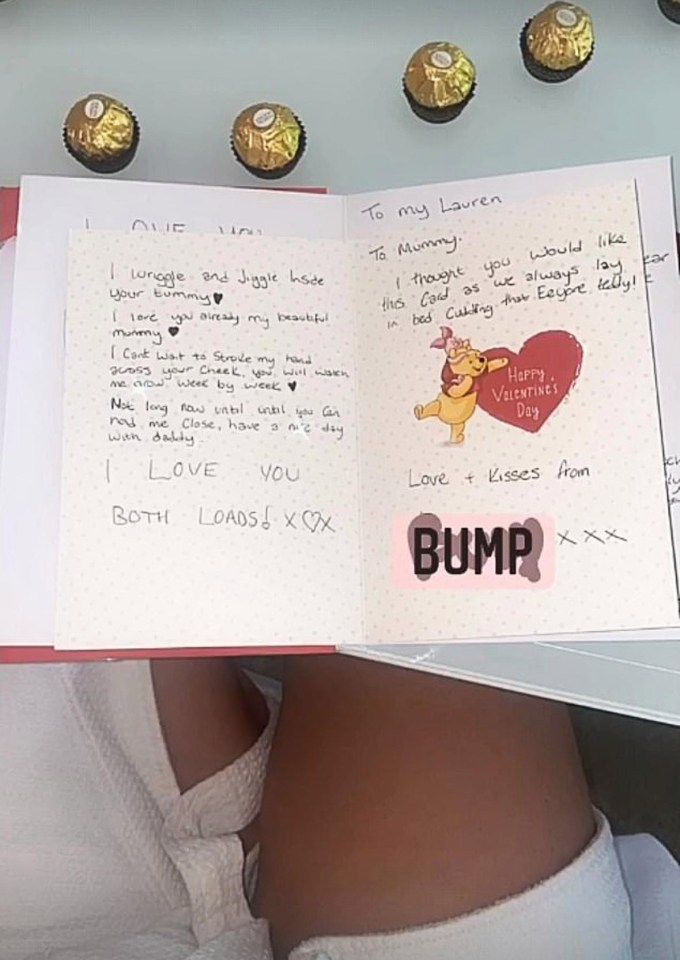 I LOVE YOU
I wriggle and Jiggle inside
your tummy♥
I love you already my beautiful
mummy ♥
I Cant wait to Stroke my hand
across your Cheek, you will watch
me grow week by week ♥
Not long now until until you Can
hold me Close, have a nice day
with daddy
I LOVE YOU
BOTH LOADS! X♡X
To my Lauren
To Mummy.
I thought you would like
this Card as we always lay
in bed Cuddling that Eeyore teddy!
HAPPY
VALENTINE'S
DAY
Love + Kisses from
BUMP xxx